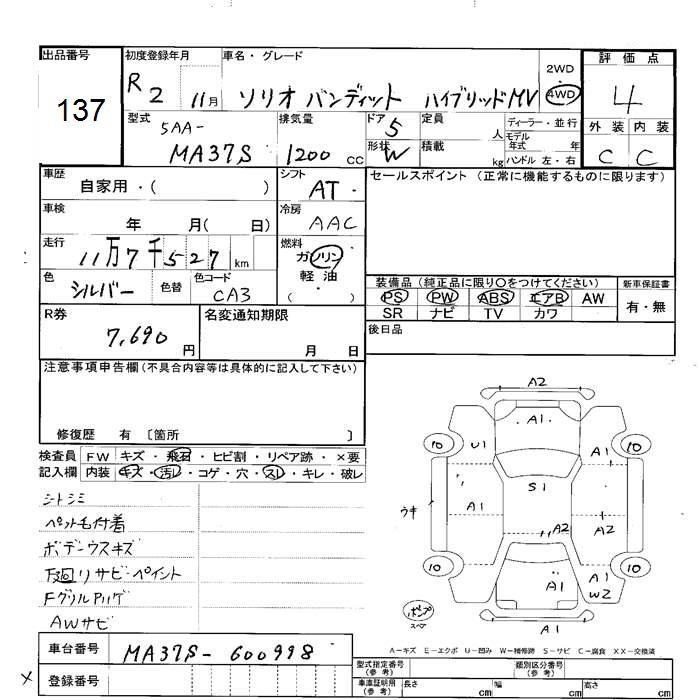 出品番号
137
初度登録年月
R2 11月
車名・グレード
ソリオ バンディット ハイブリッドMV
2WD
4WD
評価点
4
型式
5AA-
MA37S
排気量
1200 CC
ドア 5
形状 W
定員 人
積載 kg
ディーラー・並行
モデル年式 年
ハンドル 左・右
外装 内装
C C
車歴
自家用・( )
シフト
AT
車検
年 月( 日)
冷房
AAC
走行
11万7千527 km
燃料
ガソリン
軽油
( )
色
シルバー
色替
色コード
CA3
セールスポイント (正常に機能するものに限ります)
装備品 (純正品に限り○をつけてください)
PS PW ABS エアB AW
SR ナビ TV カワ
新車保証書
有・無
後日品
R券
7,690 円
名変通知期限
月 日
注意事項申告欄 (不具合内容等は具体的に記入して下さい)
修復歴 有 〔箇所 〕
検査員記入欄
FW キズ・飛石・ヒビ割・リペア跡・×要
内装 キズ・汚レ・コゲ・穴・スレ・キレ・破レ
シートシミ
ペット毛付着
ボデーウスキズ
下回リサビ・ペイント
FグリルPハゲ
AWサビ
A2
A1
10
10
U1
A1
S1
ウキ
A1
A2
A2
10
10
A1
A1
W2
A1
ポンプ
スペア
A-キズ E-エクボ U-凹み W-補修跡 S-サビ C-腐食 XX-交換済
車台番号
MA37S-600998
登録番号
X
型式指定番号 (参考)
類別区分番号 (参考)
車庫証明用 (参考)
長さ cm 幅 cm 高さ cm